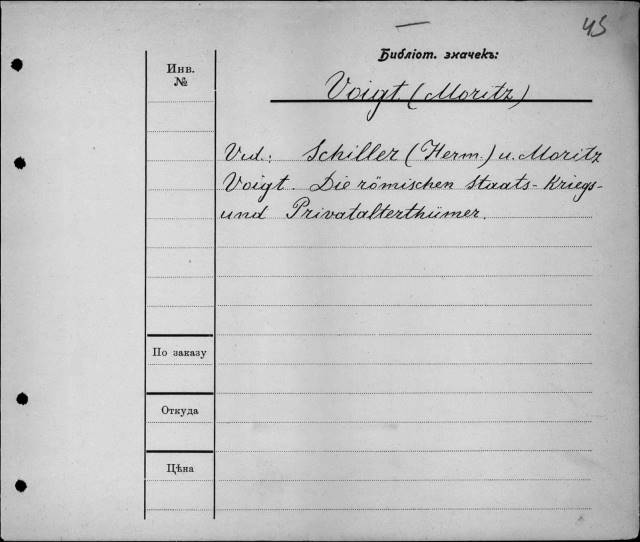 45
Библіот. значекъ:
Инв.
№
Voigt (Moritz)
Vid.: Schiller (Herm.) u. Moritz
Voigt. Die römischen Staats-Kriegs-
und Privatalterthümer.
По заказу
Откуда
Цѣна